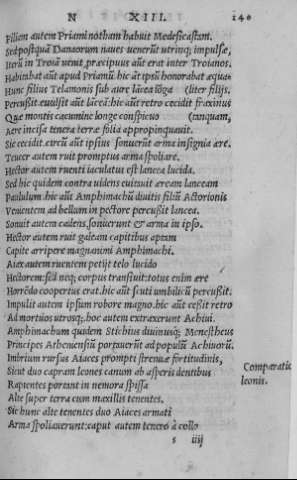 N XIII. 140
Filiam autem Priami notham habuit Medesicastam.
Sed postquā Danaorum naues uenerūt utrinq; impulsæ,
Iterū in Troiā uenit, præcipuus aūt erat inter Troianos.
Habitabat aūt apud Priamū. hic āt ipsū honorabat æqua-
Hunc filius Telamonis sub aure lācea lōga (liter filijs.
Percußit. euulsit aūt lāceā: hic aūt retro cecidit fraxinus
Quæ montis cacumine longe conspicuo (tanquam,
Aere incisa tenera terræ folia appropinquauit.
Sic cecidit. circū aūt ipsius sonuerūt arma insignia ære.
Teucer autem ruit promptus arma spoliare.
Hector autem ruenti iaculatus est lancea lucida.
Sed hic quidem contra uidens euitauit æream lanceam
Paululum. hic aūt Amphimachū diuitis filiū Actorionis
Venientem ad bellum in pectore percußit lancea.
Sonuit autem cadens, sonuerunt & arma in ipso.
Hector autem ruit galeam capitibus aptam
Capite arripere magnanimi Amphimachi.
Aiax autem ruentem petijt telo lucido
Hectorem: sed neq; corpus transiuit: totus enim ære
Horrēdo coopertus erat. hic aūt scuti umbilicū percußit.
Impulit autem ipsum robore magno. hic aūt ceßit retro
Ad mortuos utrosq;. hoc autem extraxerunt Achiui.
Amphimachum quidem Stichius diuinusq; Menestheus
Principes Atheniensiū portauerūt ad populū Achiuorū.
Imbrium rursus Aiaces prompti strenuæ fortitudinis,
Sicut duo capram leones canum ab asperis dentibus
Comparatio leonis.
Rapientes portant in nemora spissa
Alte super terra eum maxillis tenentes.
Sic hunc alte tenentes duo Aiaces armati
Arma spoliauerunt: caput autem tenero à collo
s iiij